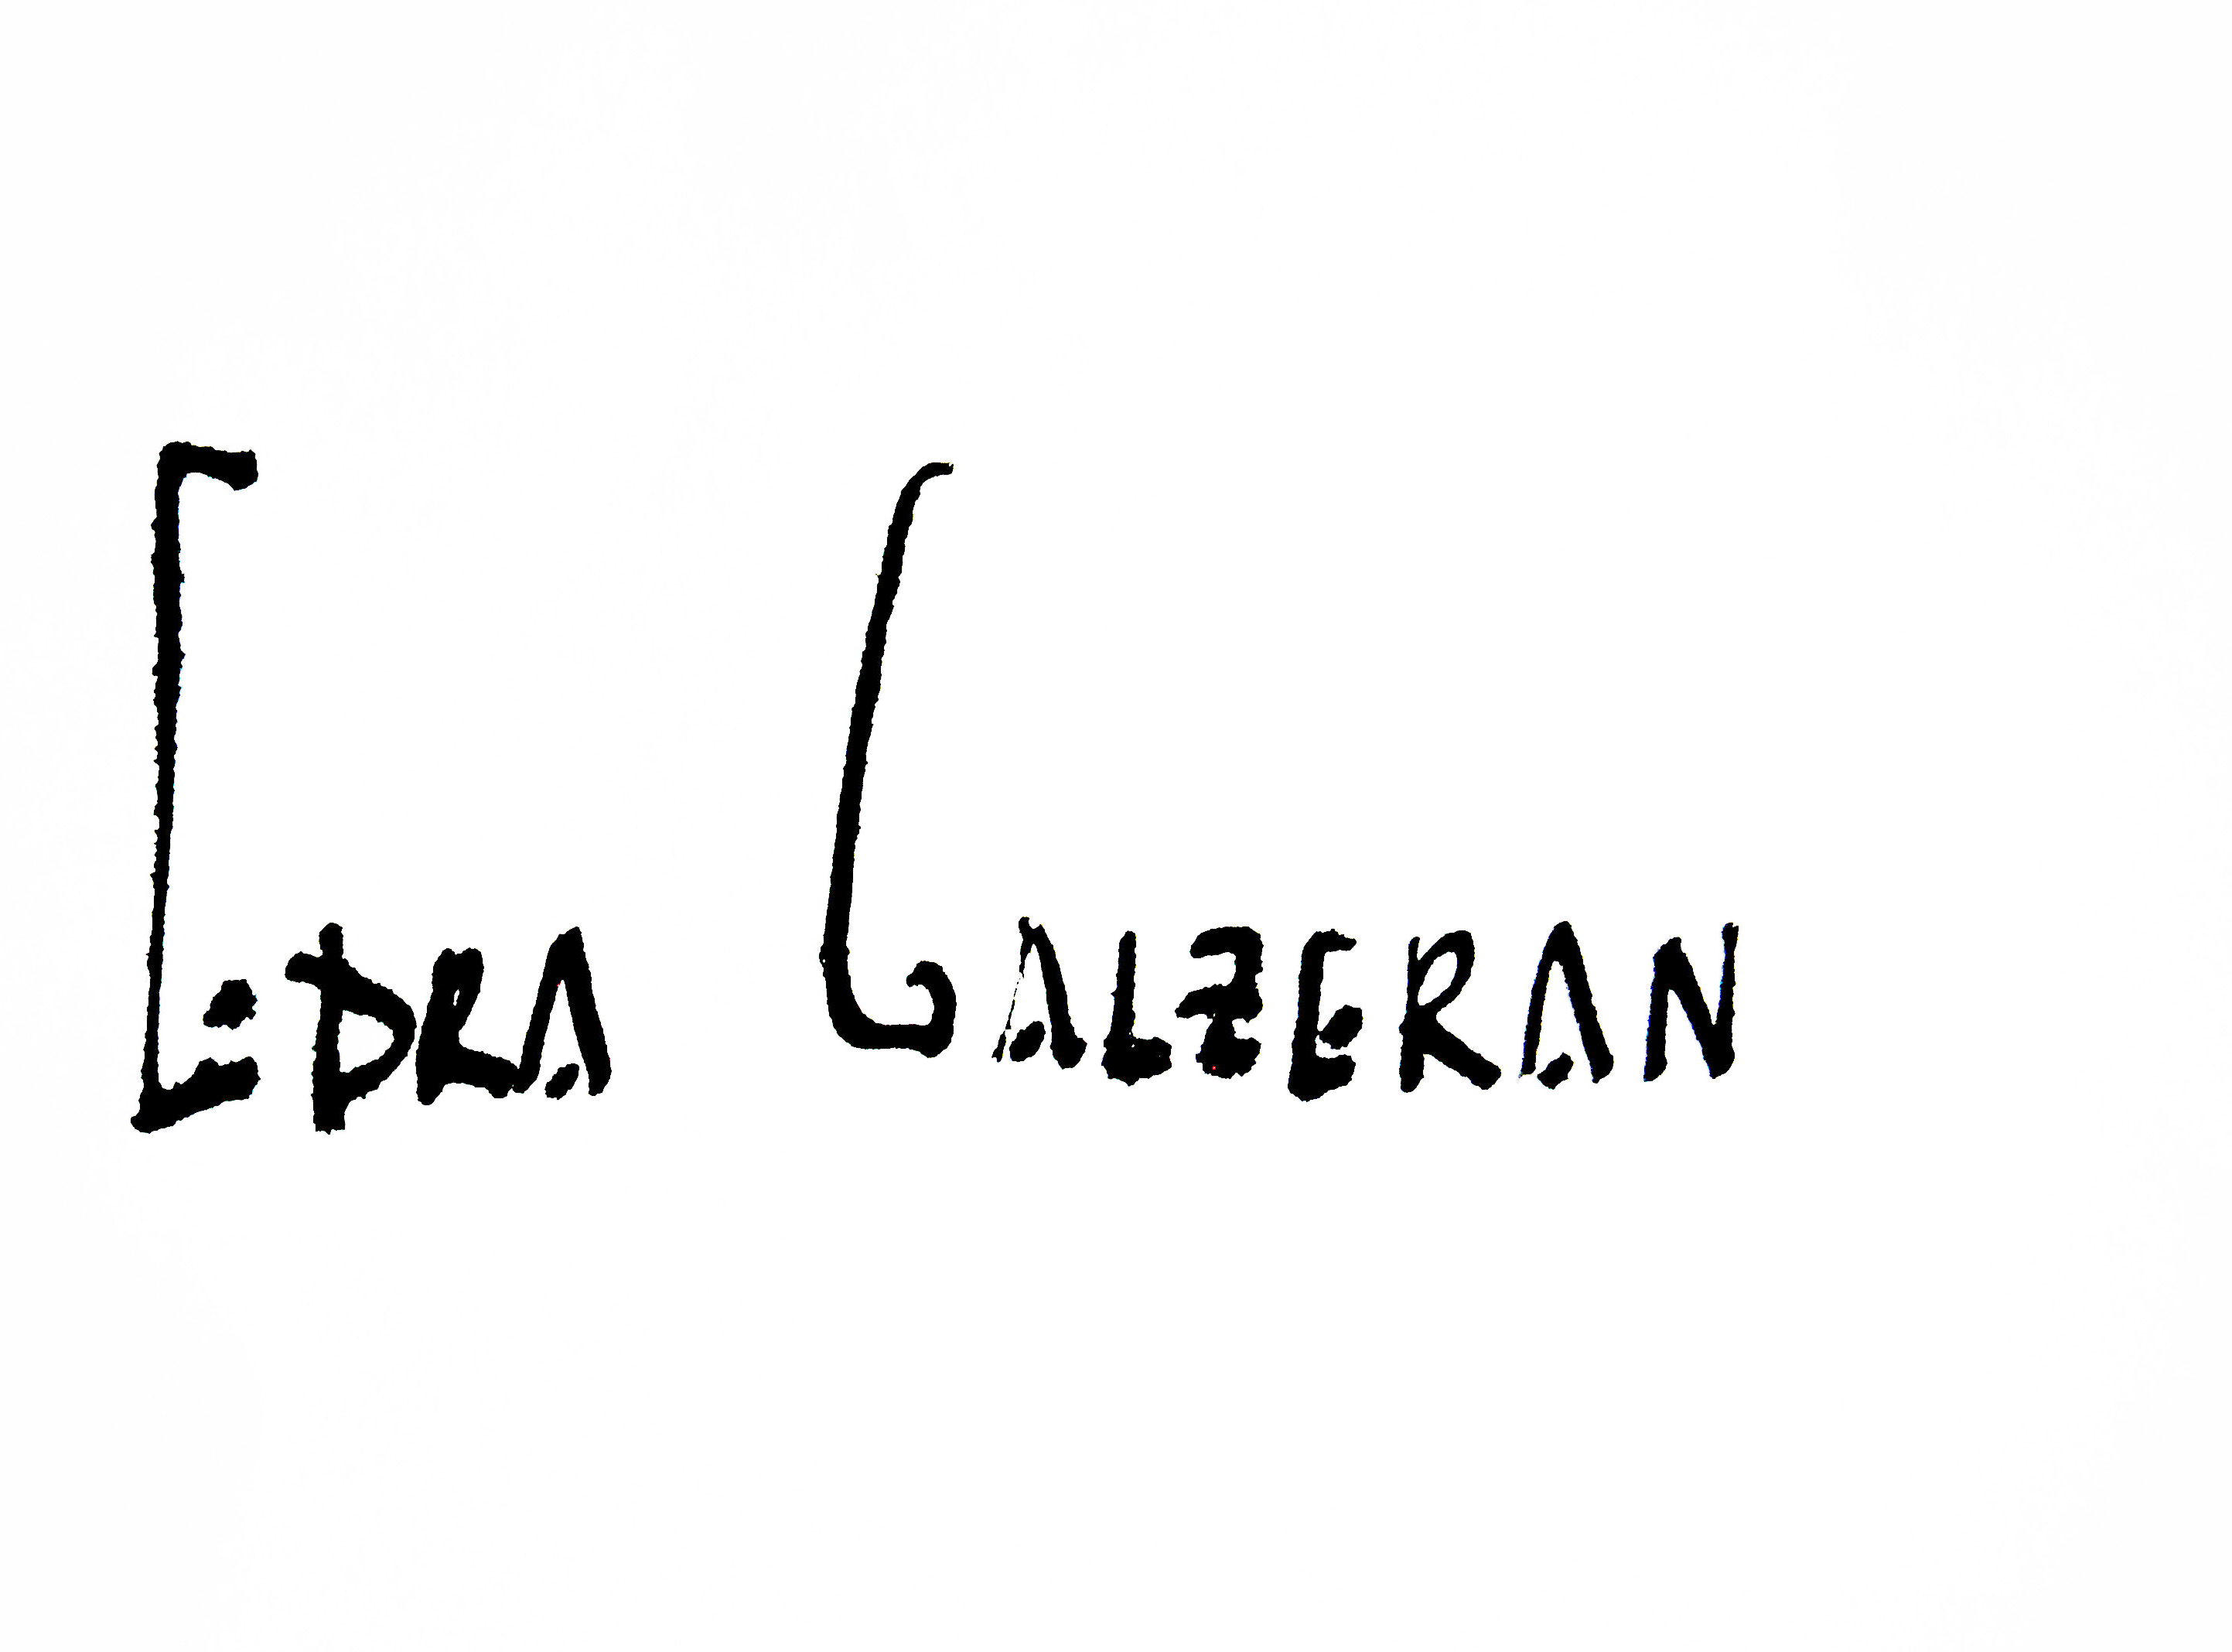 EDRA GALZERAN